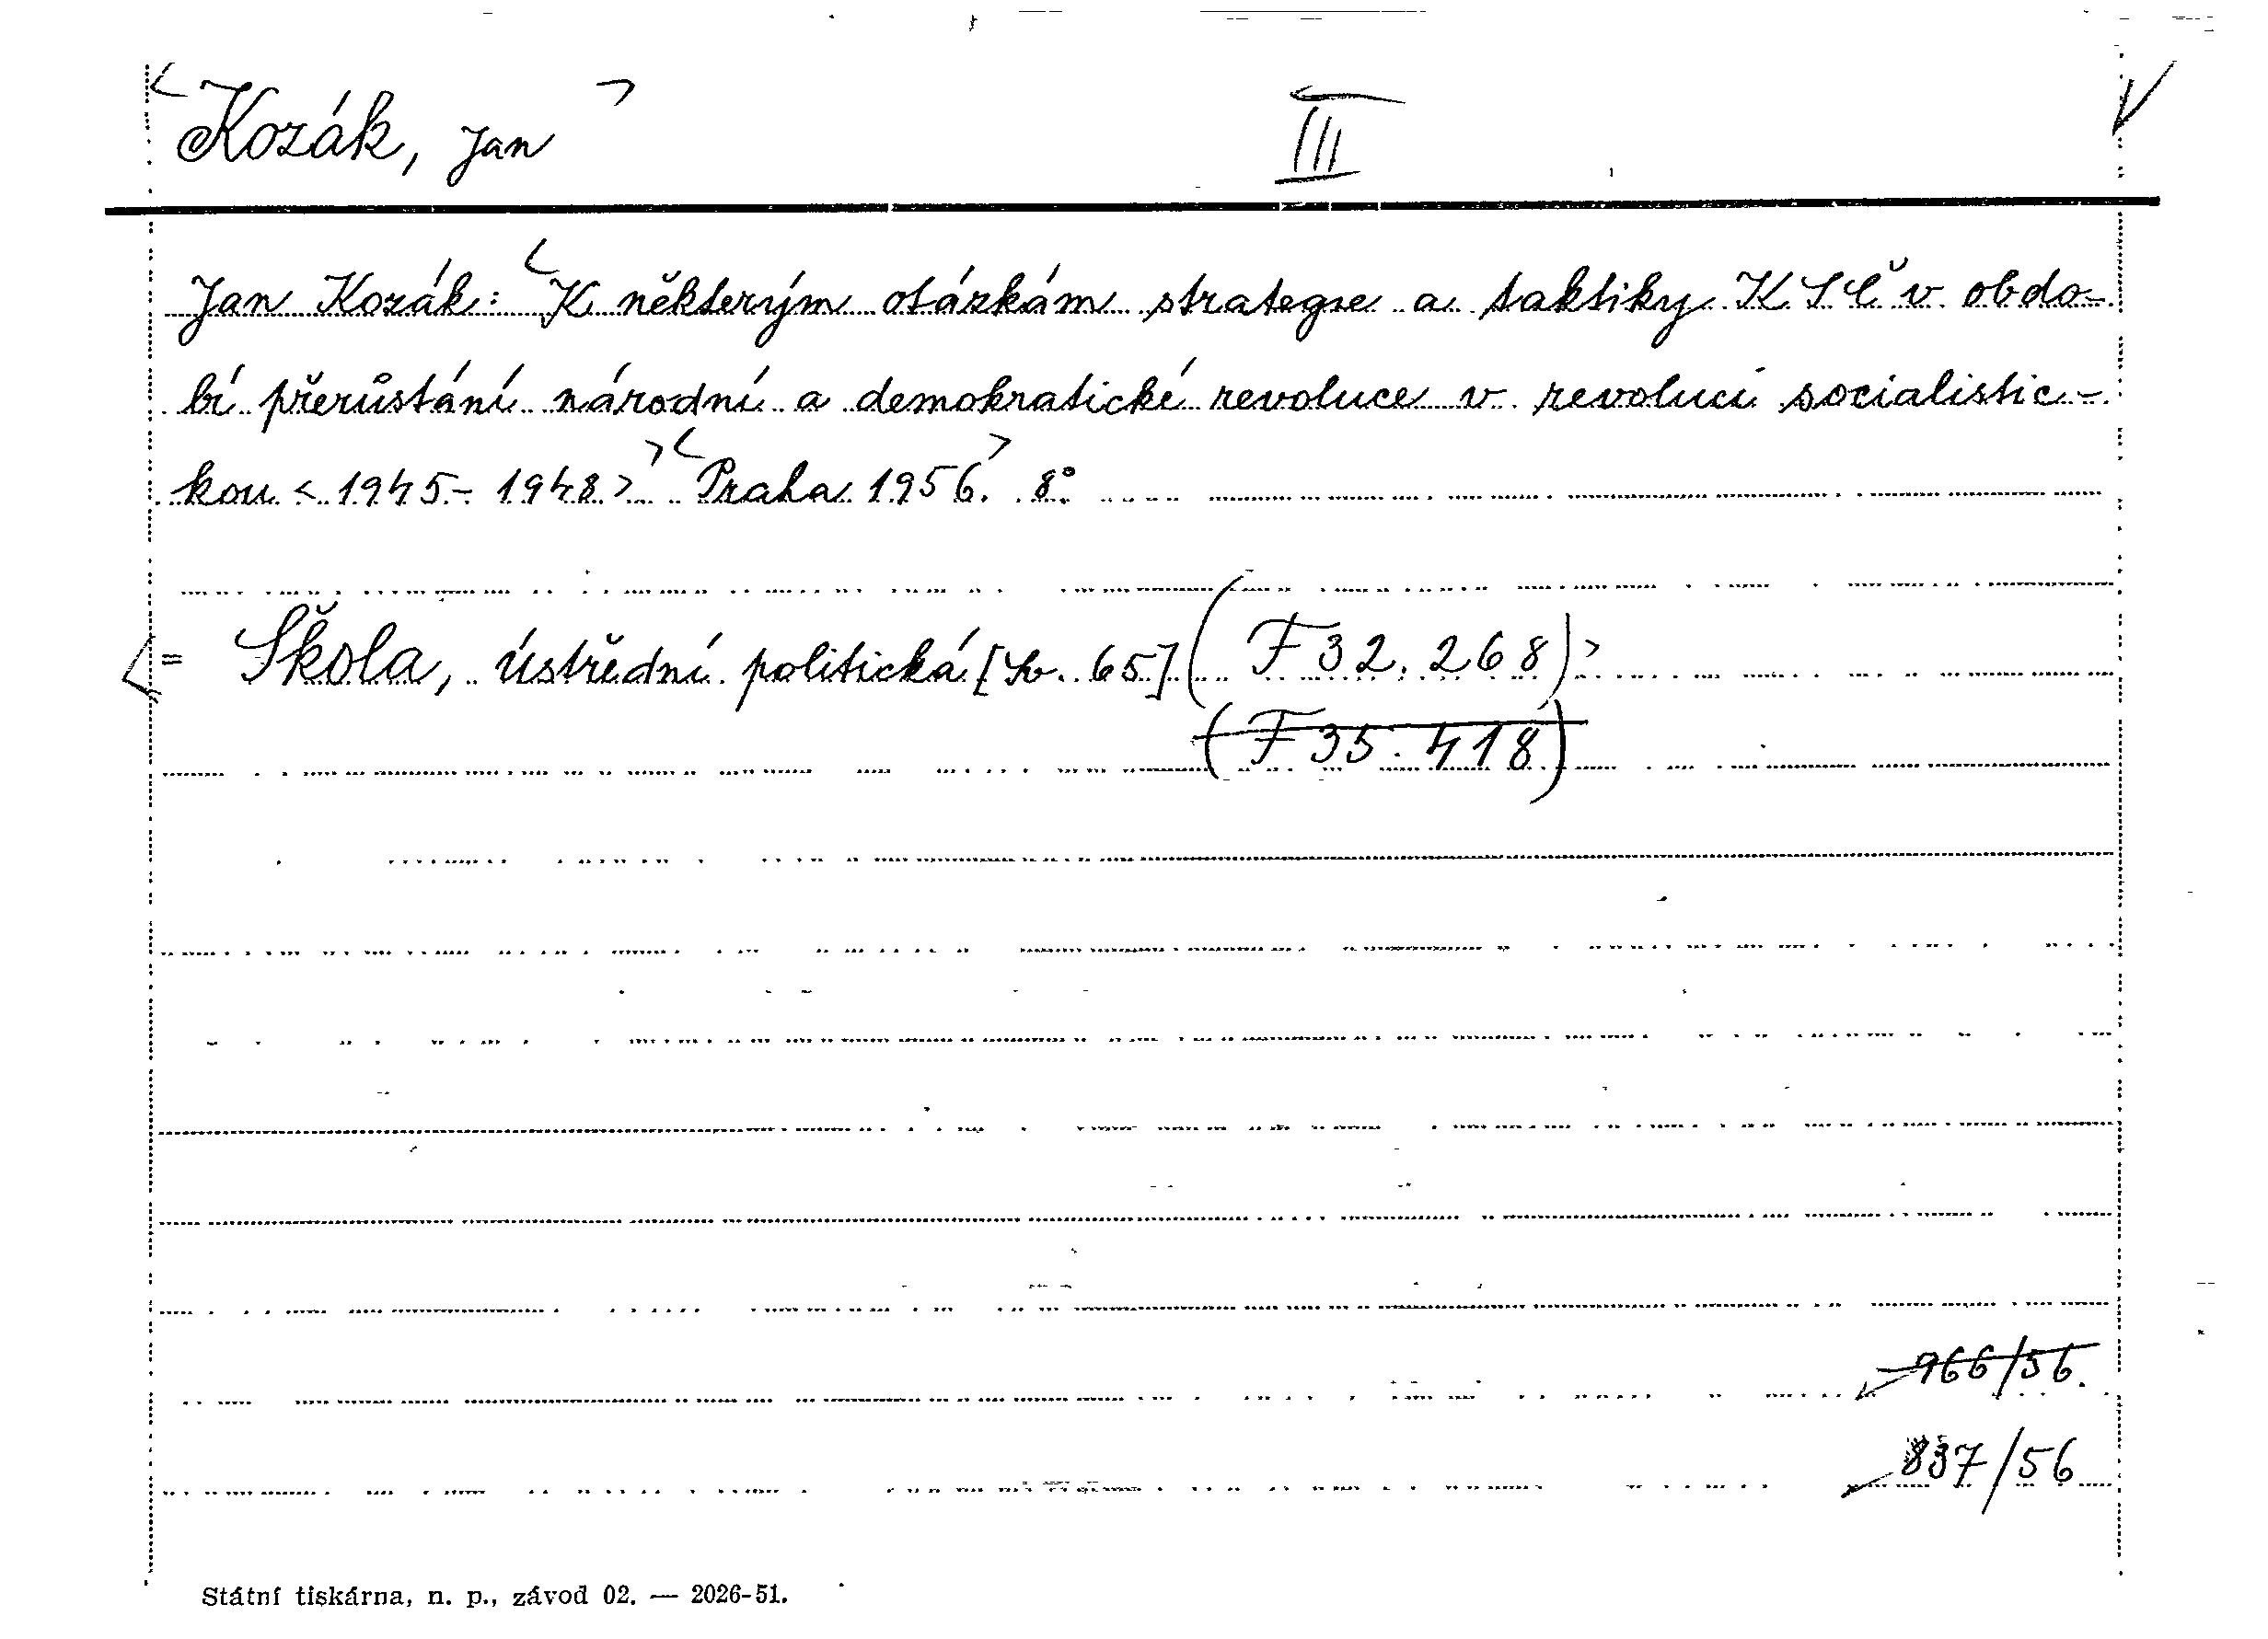 Kozák, Jan III
Jan Kozák: K některým otázkám strategie a taktiky KSČ v obdo-
bí přerůstání národní a demokratické revoluce v revoluci socialistic-
kou <1945-1948> Praha 1956. 8°
= Škola, ústřední politická [Sv. 65] (F 32.268)
(F 35.418)
966/56.
837/56
Státní tiskárna, n. p., závod 02. — 2026-51.